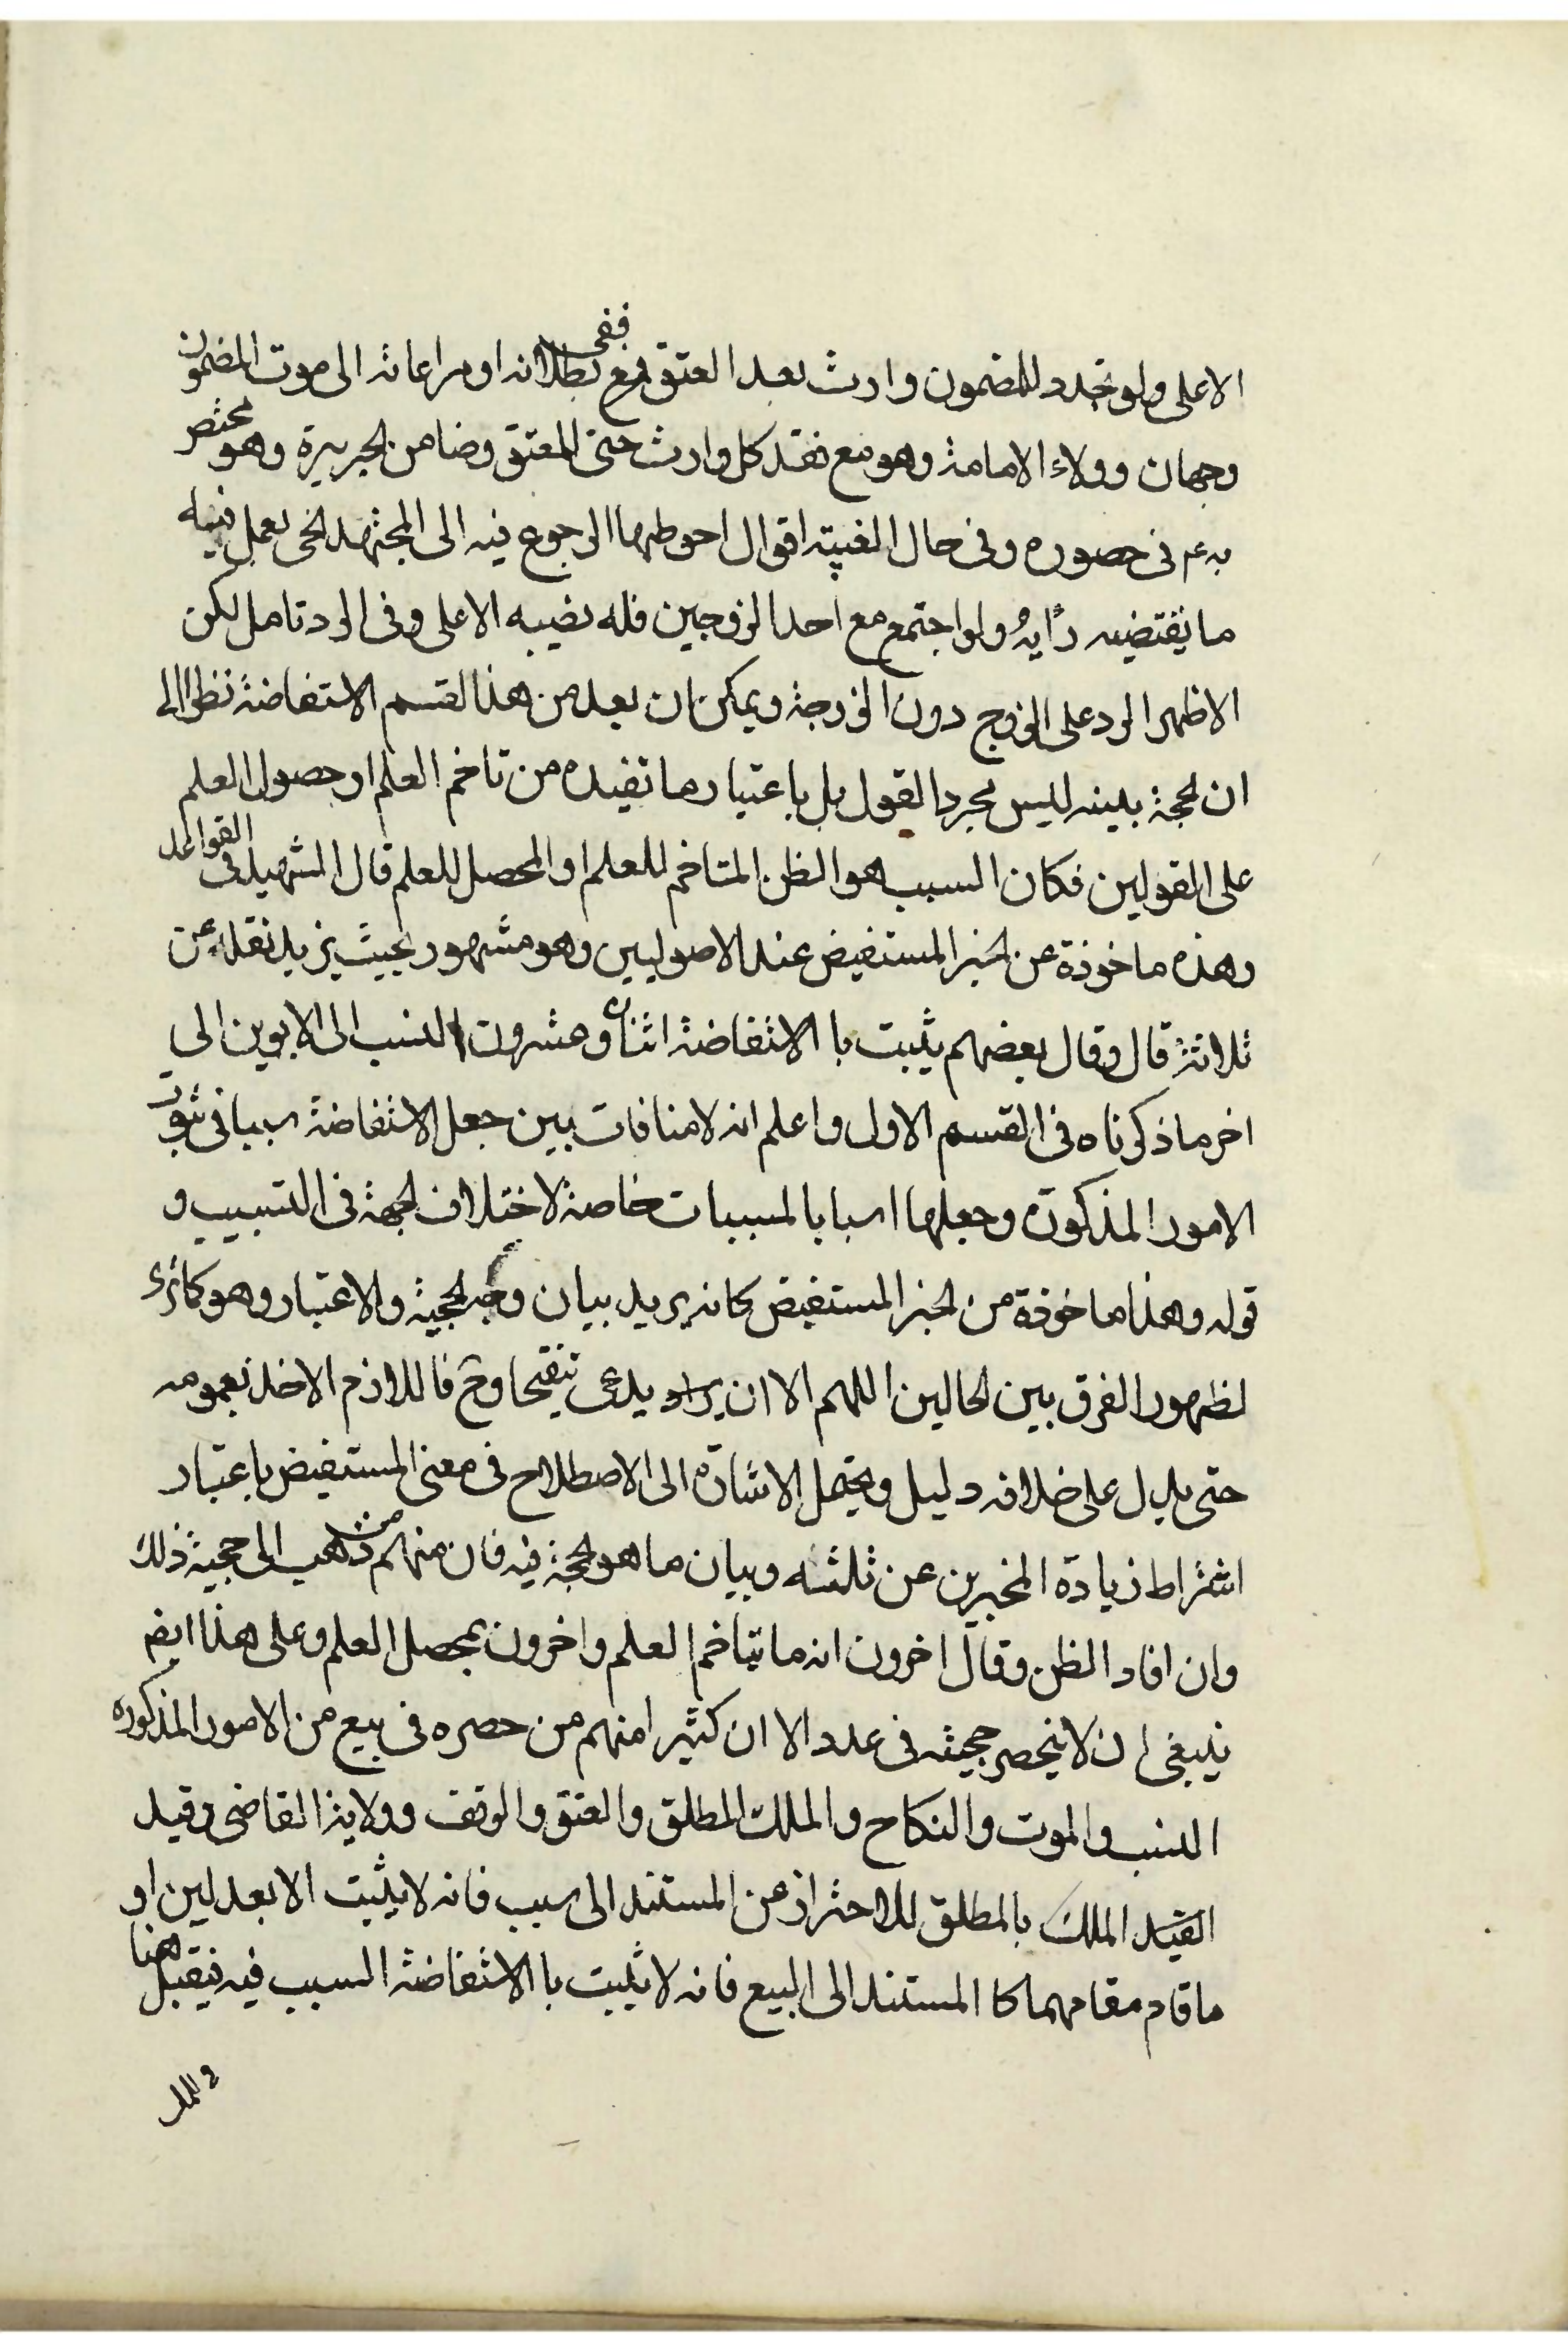 الاعلى ولو تجدد للمضمون وارث بعد العتق ففى بطلانه او مراعاته الى موت المضمون
وجهان وولاء الامامة وهو مع فقد كل وارث حتى المعتق وضامن الجريرة وهو مختص
به عم فى حصوره وفى حال الغيبة اقوال احوطها الرجوع فيه الى المجتهد لخى يعمل فيه
ما يقتضيه رأيه ولو اجتمع مع احد الزوجين فله نصيبه الاعلى وفى الرد تامل لكن
الاظهر الرد على الزوج دون الزوجة ويمكن ان يعد من هذا القسم الاستفاضة نظرا الى
ان الحجة بينه ليس مجرد القول بل باعتبار ما تفيده من تاخم العلم او حصول العلم
على القولين فكان السبب هو الظن المتاخم للعلم او المحصل للعلم قال الشهيد فى القواعد
وهذه ماخوذة عن الخبر المستفيض عند الاصوليين وهو مشهور بحيث يزيد نقله عن
ثلاثة قال وقال بعضهم يثبت با الاستفاضة اثنان وعشرون النسب الى الابوين الى
اخر ما ذكرناه فى القسم الاول واعلم انه لا منافات بين جعل الاستفاضة سببا فى ثبوت
الامور المذكورة وجعلها اسبابا لمسببات خاصة لاختلاف الجهة فى التسبيب و
قوله وهذا ماخوذة من الخبر المستفيض كانه يريد بيان وجه الحجية والاعتبار وهو كما ترى
لظهور الفرق بين الحالين اللهم الا ان يراد يدعى تنقيحا وح فاللازم الاخذ بعمومه
حتى يدل على خلافه دليل ويحتمل الاشارة الى الاصطلاح فى معنى المستفيض باعتبار
اشتراط زيادة المخبرين عن ثلثه وبيان ما هو الحجة فيه فان منهم من ذهب الى حجية ذلك
وان افاد الظن وقال اخرون انه ما يتاخم العلم واخرون بمحصل العلم وعلى هذا ايضم
ينبغى ان لا ينحصر حجيته فى عدد الا ان كثيرا منهم من حصره فى بيع من الامور المذكوره
النسب والموت والنكاح والملك المطلق والعتق والوقف وولاية القاضى وقيد
القيد الملك بالمطلق للاحتراز عن المستند الى سبب فانه لا يثبت الا بعدلين او
ما قام مقامهما كا المستند الى البيع فانه لا يثبت با الاستفاضة السبب فيه فيقبل هنا